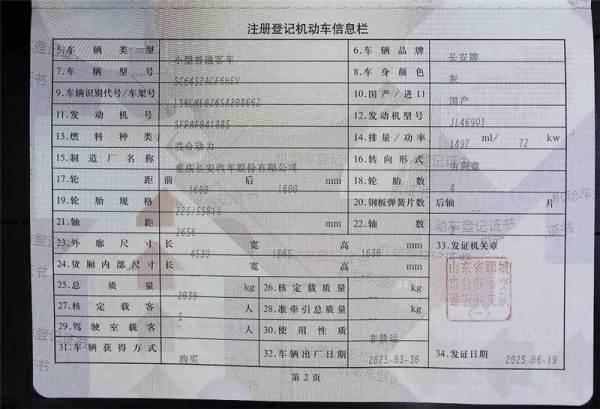 注册登记机动车信息栏
5.车辆类型 小型普通客车 6.车辆品牌 长安牌
7.车辆型号 8.车身颜色 灰
9.车辆识别代号/车架号 10.国产/进口 国产
11.发动机号 12.发动机型号 JL469Q1
13.燃料种类 混合动力 14.排量/功率 1497 ml/ 72 kw
15.制造厂名称 重庆长安汽车股份有限公司 16.转向形式 方向盘
17.轮距 前 1600 后 1600 mm 18.轮胎数 4
19.轮胎规格 225/55R19 20.钢板弹簧片数 后轴 片
21.轴距 2656 mm 22.轴数
23.外廓尺寸 长 4530 宽 1865 高 1680 mm 33.发证机关章
24.货厢内部尺寸 长 宽 高 mm
25.总质量 kg 26.核定载质量 kg
27.核定载客 5 人 28.准牵引总质量 kg
29.驾驶室载客 人 30.使用性质 非营运
31.车辆获得方式 购买 32.车辆出厂日期 2025-03-30 34.发证日期 2025-06-19
第2页